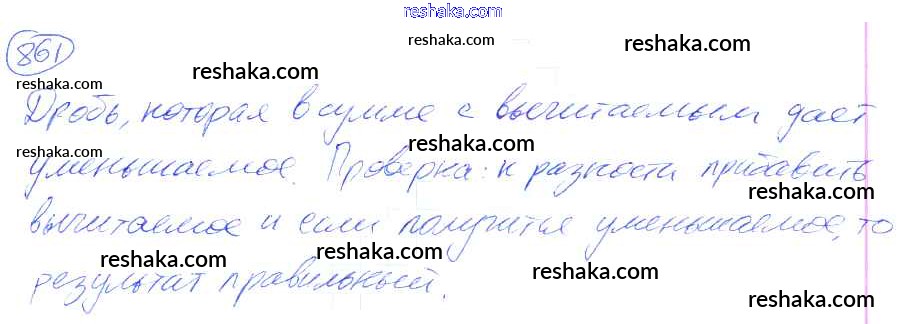 reshaka.com
861
Дробь, которая в сумме с вычитаемым дает
уменьшаемое. Проверка: к разности прибавить
вычитаемое и если получится уменьшаемое, то
результат правильный.
reshaka.com
reshaka.com
reshaka.com
reshaka.com
reshaka.com
reshaka.com
reshaka.com
reshaka.com
reshaka.com
reshaka.com
reshaka.com
reshaka.com